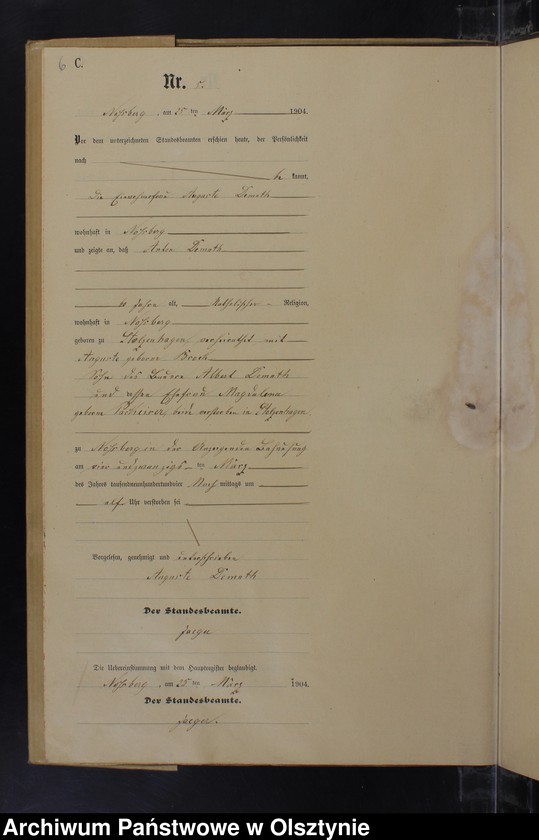 6 C.
Nr. 5.
Noßberg, am 25ten März 1904.
Vor dem unterzeichneten Standesbeamten erschien heute, der Persönlichkeit
nach
be kannt,
die Einwohnerfrau Auguste Demuth
wohnhaft in Noßberg
und zeigte an, daß Anton Demuth
Jahre alt, katholischer Religion,
wohnhaft in Noßberg
geboren zu Stolzenhagen, verheirathet mit
Auguste geborene
Sohn des Albert Demuth
und dessen Ehefrau Magdalena
geborene beide verstorben in Stolzenhagen
zu Noßberg in der Behausung
am vier und zwanzigsten März
des Jahres tausendneunhundertundvier Nachmittags um
elf Uhr verstorben sei
Vorgelesen, genehmigt und unterschrieben
Auguste Demuth
Der Standesbeamte.
Jaeger
Die Uebereinstimmung mit dem Hauptregister beglaubigt.
Noßberg, am 25ten März 1904.
Der Standesbeamte.
Jaeger.
Archiwum Państwowe w Olsztynie